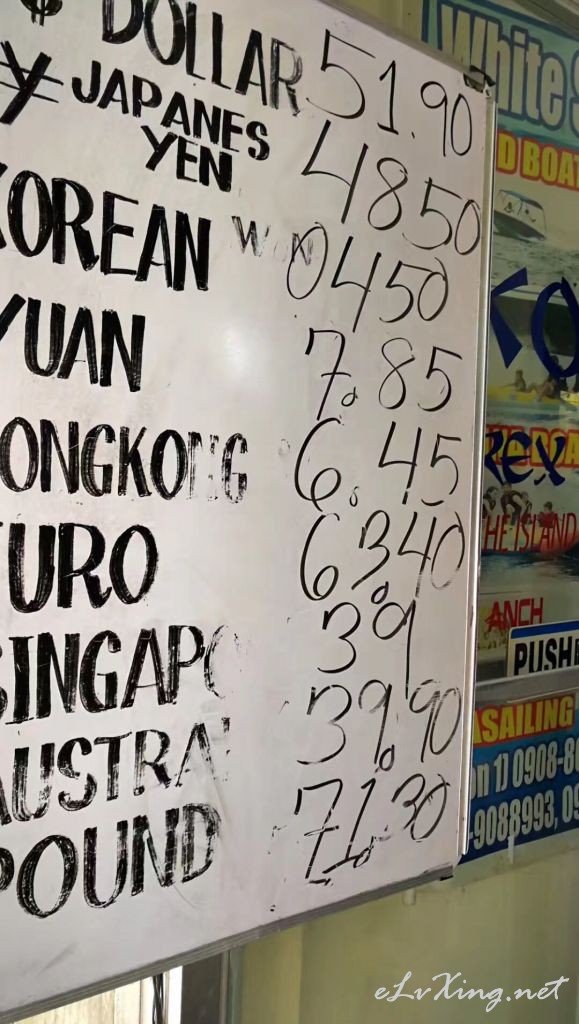 $ DOLLAR 51.90
¥ JAPANES
YEN 4850
KOREAN WON 0450
YUAN 7.85
ONGKONG 6.45
URO 63.40
SINGAP 39
AUSTRA 39.90
POUND 71.30
White S
D BOA
REX
HE ISLAND
ANCH
PUSH
ASAILING
on 1) 0908-8
-9088993, 09
eLvXing.net